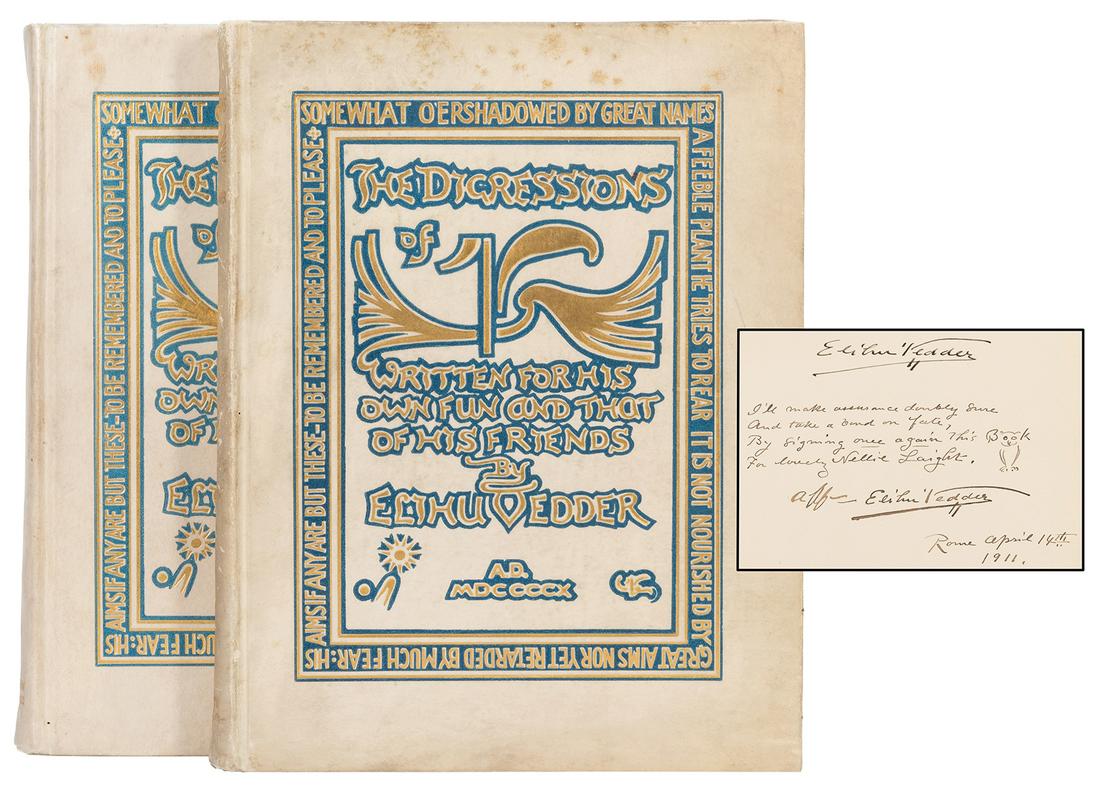 SOMEWHAT O
AIMS IF ANY ARE BUT THESE-TO BE REMEMBERED AND TO PLEASE
UCH FEAR: HIS
THE
of
WR
OWN
OF
ELI
SOMEWHAT O'ERSHADOWED BY GREAT NAMES
A FEEBLE PLANT HE TRIES TO REAR IT IS NOT NOURISHED BY
GREAT AIMS NOR YET RETARDED BY MUCH FEAR: HIS
AIMS IF ANY ARE BUT THESE-TO BE REMEMBERED AND TO PLEASE
THE DIGRESSIONS
of V
WRITTEN FOR HIS
OWN FUN AND THAT
OF HIS FRIENDS
BY
ELIHU VEDDER
A.D.
MDCCCCX
Elihu Vedder
I'll make assurance doubly sure
And take a bond on Fate,
By signing once again This Book
For lovely Nellie Laight.
Aff Elihu Vedder
Rome April 14th
1911.